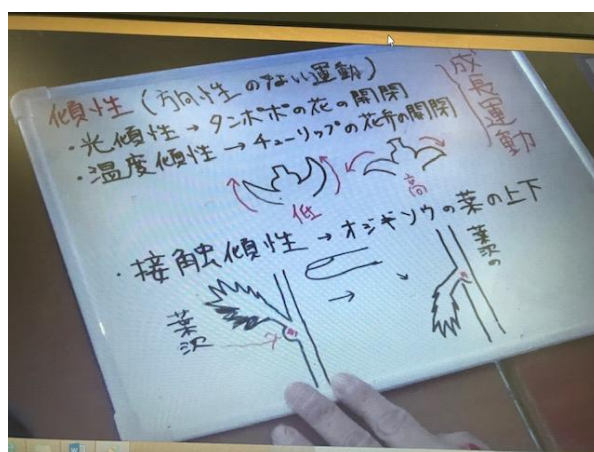 傾性（方向性のない運動）
・光傾性→タンポポの花の開閉
・温度傾性→チューリップの花弁の開閉
成長運動
低
高
・接触傾性→オジギソウの葉の上下
葉沈
葉沈の